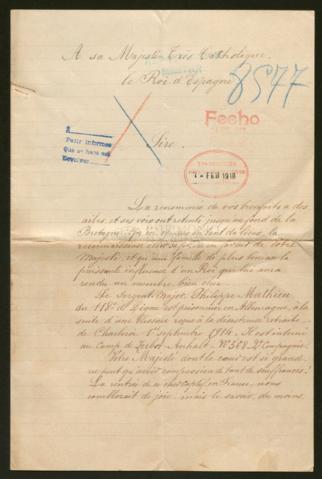 A sa Majesté Très Catholique,
le Roi d'Espagne
8577
Fecho
Pedir informes
Que se haga así
Devolver
Sire,
1- FEB 1918
La renommée de vos bienfaits a des
ailes, et ses voix ont retenti jusqu'au fond de la
Bretagne
reconnaissance
Majesté, et qu'une famille de plus bénisse la
puissante influence d'un Roi qui lui aura
rendu un membre bien cher.
Le Sergent Major Philippe Mathieu
du 118e de Ligne est prisonnier en Allemagne, à la
suite d'une blessure reçue à la désastreuse retraite
de Charleroi 1er septembre 1914. Il est interné
au Camp de Zerbst Anhalt - No 368 2e Compagnie.
Votre Majesté dont le cœur est si grand
ne peut qu'avoir compassion de tant de souffrances!
La rentrée de ce cher captif en France, nous
comblerait de joie, mais le savoir, du moins,